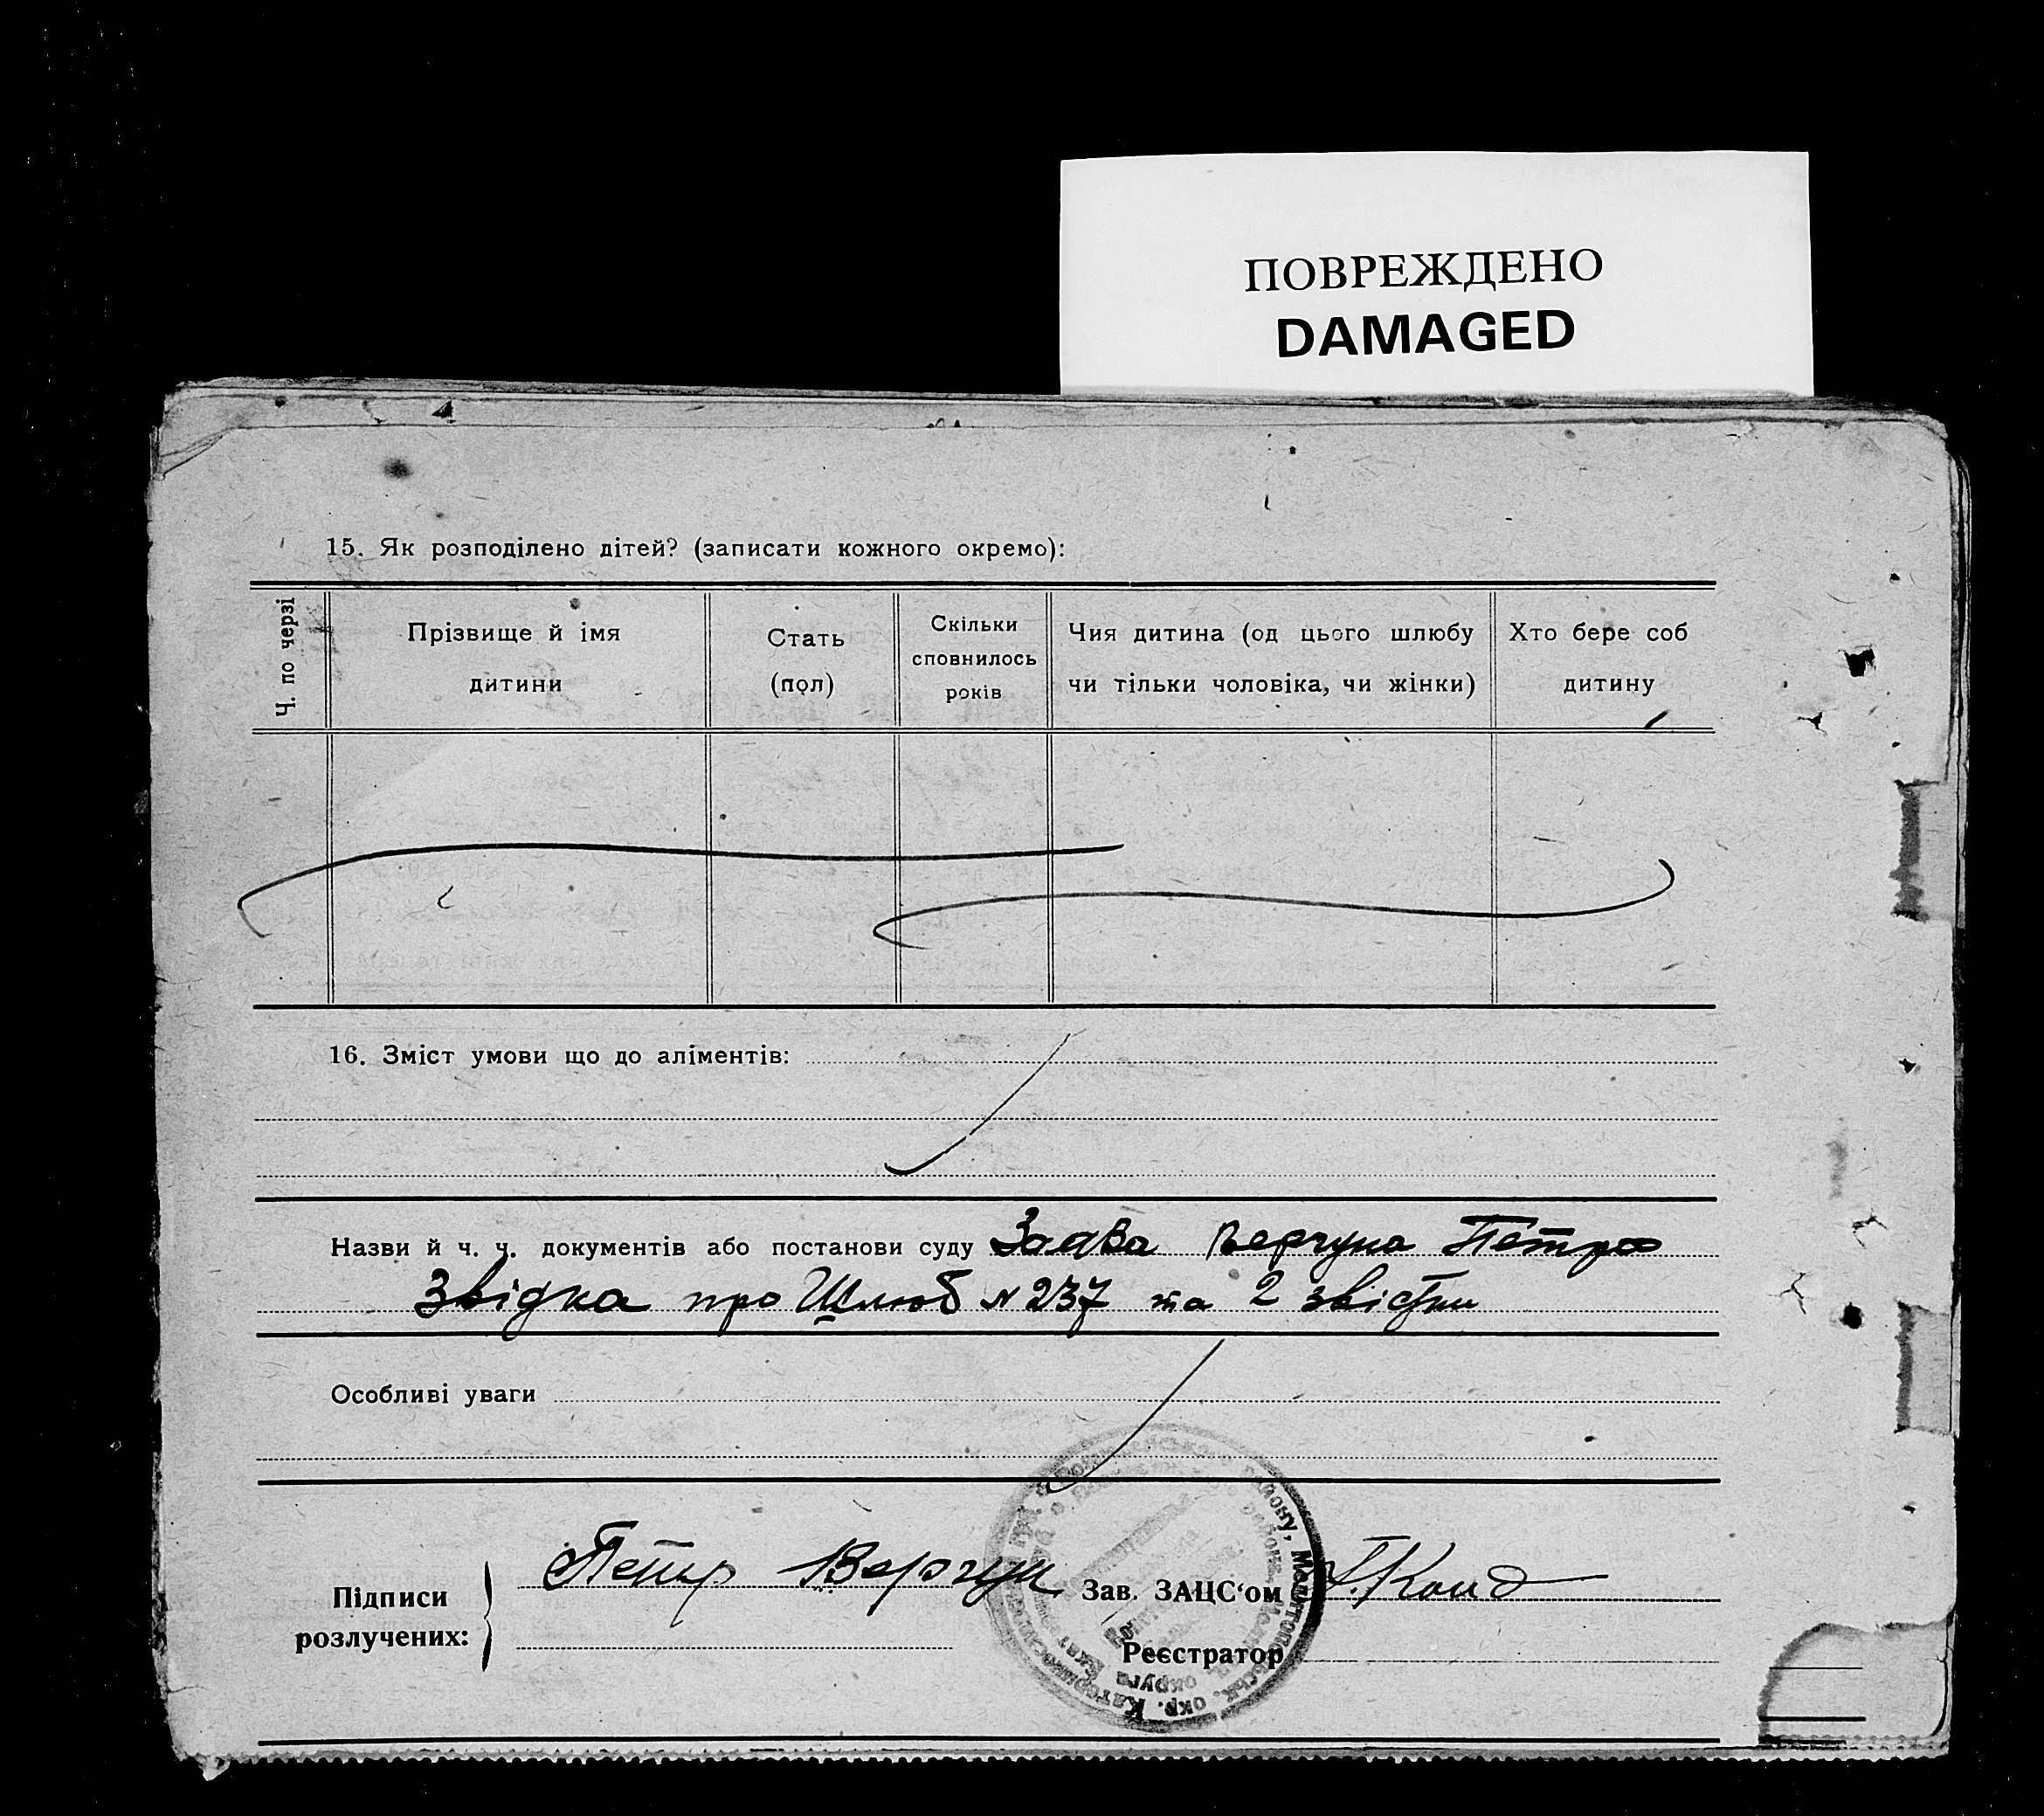 ПОВРЕЖДЕНО
DAMAGED
15. Як розподілено дітей? (записати кожного окремо):
Ч. по черзі
Прізвище й імя
дитини
Стать
(пол)
Скільки
сповнилось
років
Чия дитина (од цього шлюбу
чи тільки чоловіка, чи жінки)
Хто бере соб
дитину
16. Зміст умови що до аліментів:
Назви й ч. ч. документів або постанови суду Заява Верчуна Петра
Звідка про Шлюб № 237 та 2 звістки
Особливі уваги
Підписи
розлучених:
Петр Верчун
Зав. ЗАЦС‘ом
Реєстратор
району, Мелітопольськ. окр. Катерин
округа Екат